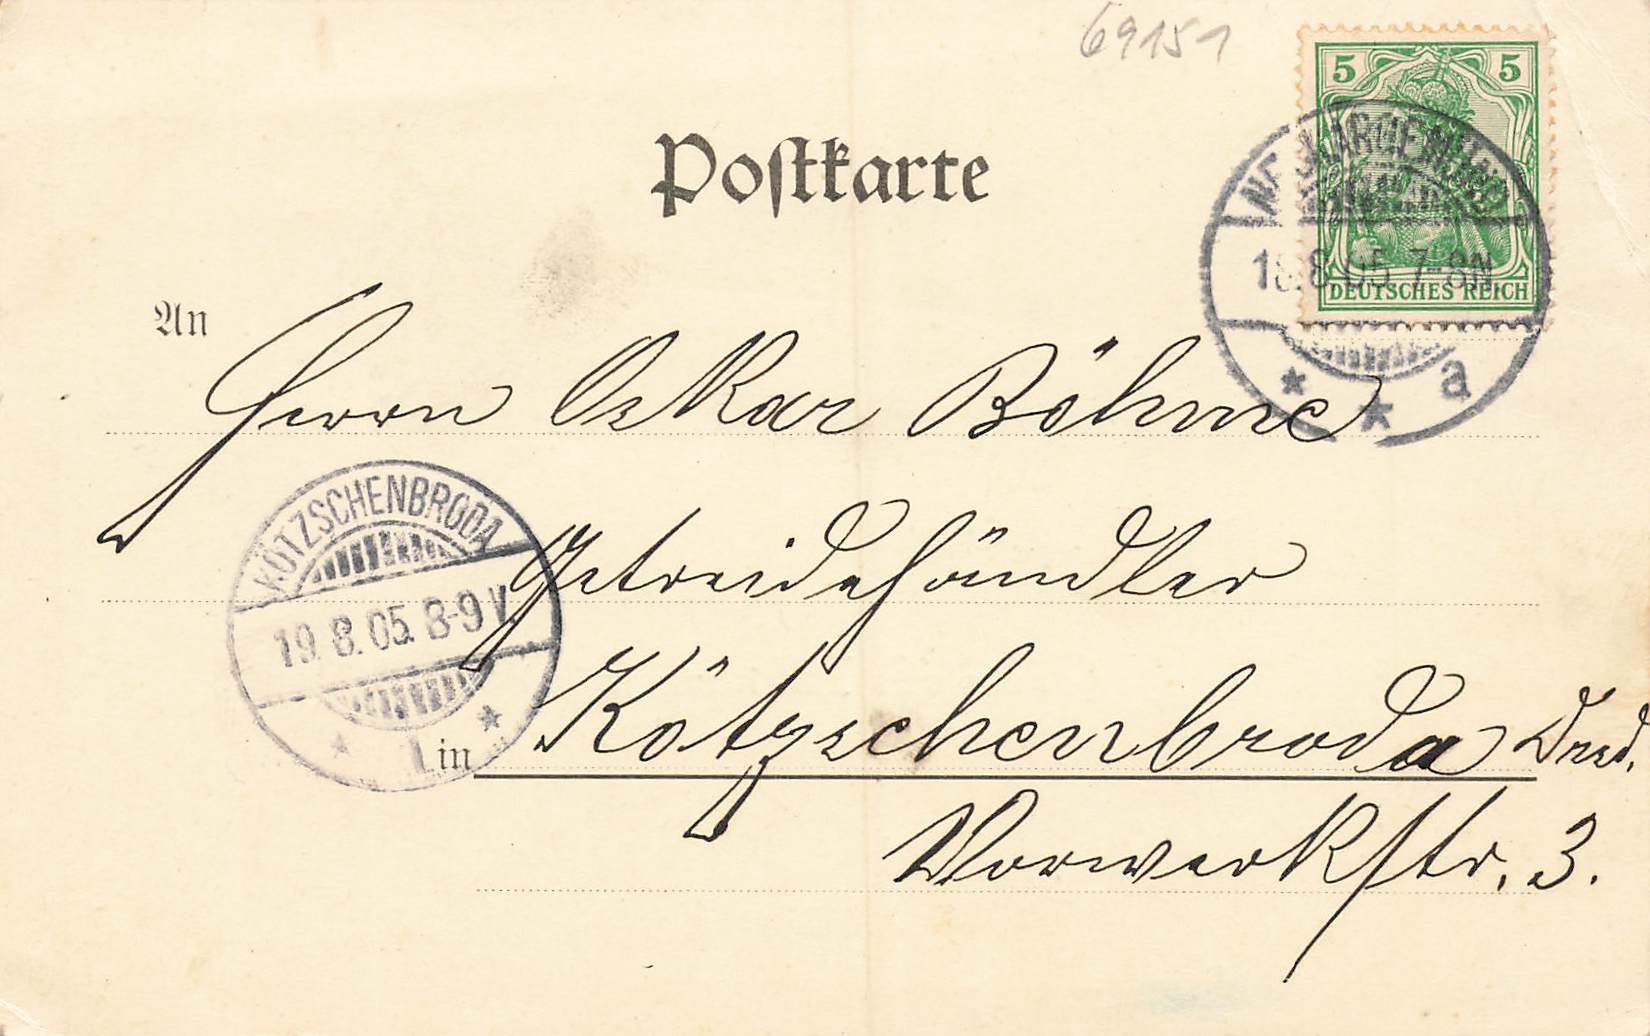 69151
5 5
Postkarte
NECKARGEMÜND
18.8.05. 7-8N.
DEUTSCHES REICH
* * a
An
Herrn Oskar Böhme
KÖTZSCHENBRODA
19. 8. 05. 8-9 V.
* 1 *
Getreidehändler
in Kötzschenbroda Dresd.
Vorwerkstr. 3.